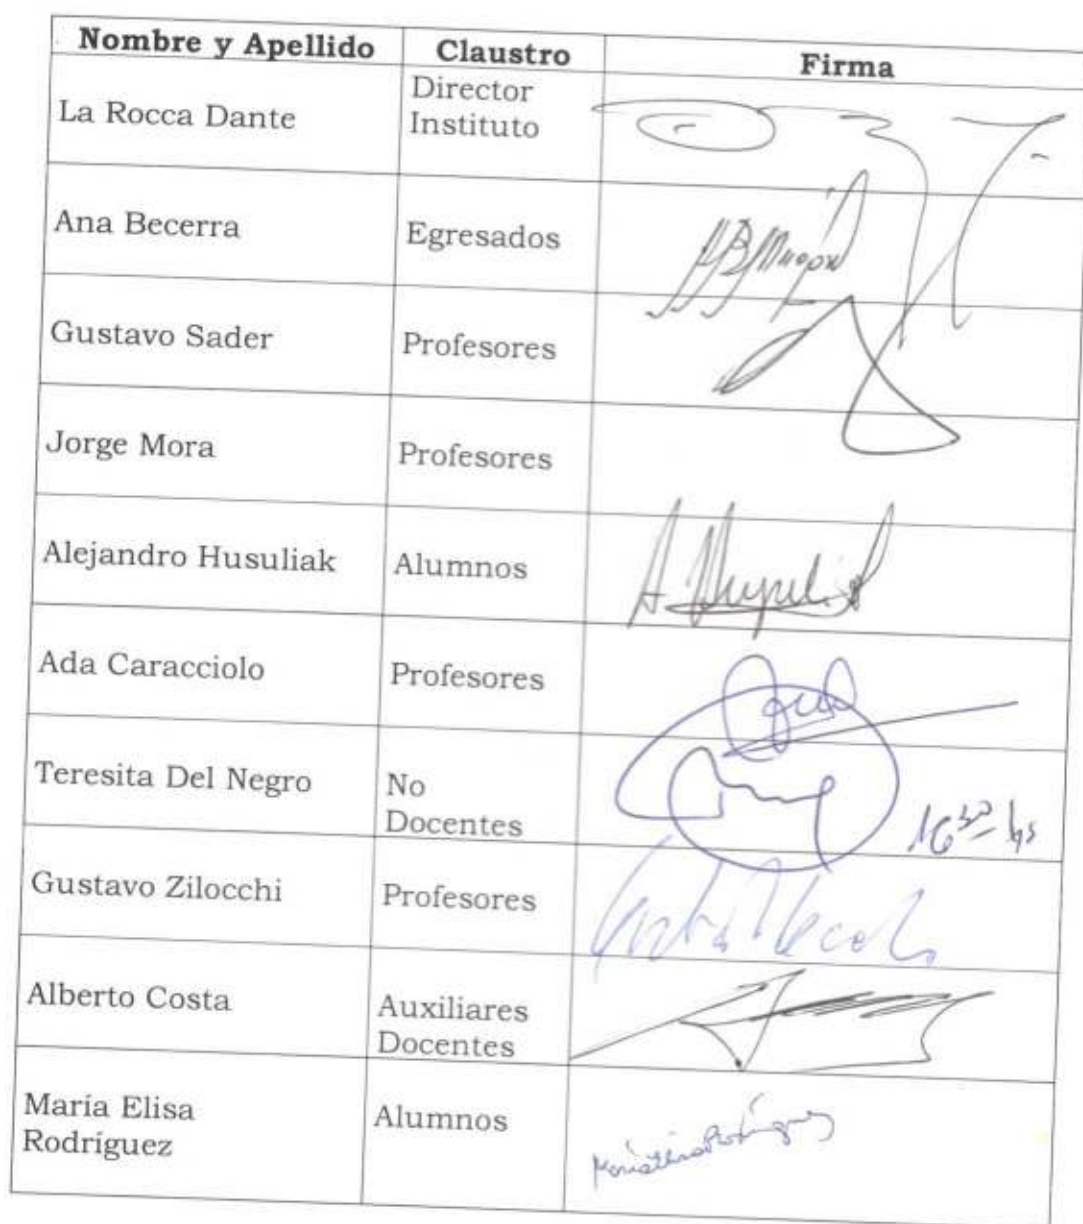 Nombre y Apellido Claustro Firma
La Rocca Dante Director
Instituto
Ana Becerra Egresados
Gustavo Sader Profesores
Jorge Mora Profesores
Alejandro Husuliak Alumnos
Ada Caracciolo Profesores
Teresita Del Negro No
Docentes 16 30 hs
Gustavo Zilocchi Profesores
Alberto Costa Auxiliares
Docentes
María Elisa Alumnos
Rodríguez